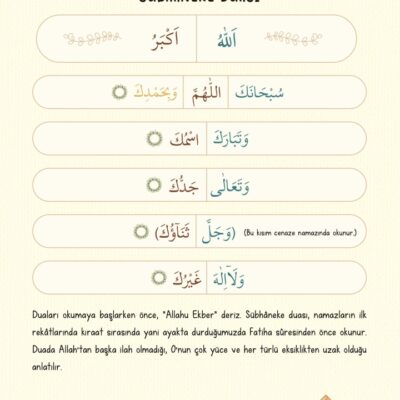 SÜBHÂNEKE DUASI
اَللّٰهُ اَكْبَرُ
سُبْحَانَكَ اللّٰهُمَّ وَبِحَمْدِكَ
وَتَبَارَكَ اسْمُكَ
وَتَعَالٰى جَدُّكَ
(وَجَلَّ ثَنَاۤؤُكَ) (Bu kısım cenaze namazında okunur.)
وَلَاۤاِلٰهَ غَيْرُكَ
Duaları okumaya başlarken önce, "Allahu Ekber" deriz. Sübhâneke duası, namazların ilk
rekâtlarında kıraat sırasında yani ayakta durduğumuzda Fatiha sûresinden önce okunur.
Duada Allah'tan başka ilah olmadığı, O'nun çok yüce ve her türlü eksiklikten uzak olduğu
anlatılır.